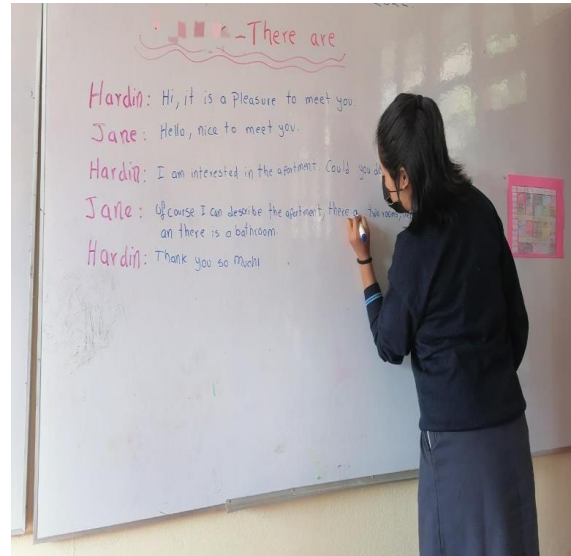 -There are
Hardin: Hi, it is a pleasure to meet you.
Jane: Hello, nice to meet you.
Hardin: I am interested in the apartment. Could you
Jane: Of course I can describe the apartment, there a two rooms,
an there is a bathroom.
Hardin: Thank you so much!